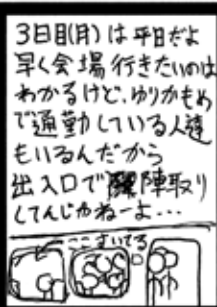 3日目(月)は平日だよ
早く会場行きたいのは
わかるけど、ゆりかもめ
で通勤している人達
もいるんだから
出入口で陣取り
してんじゃねーよ...
ここすいてる